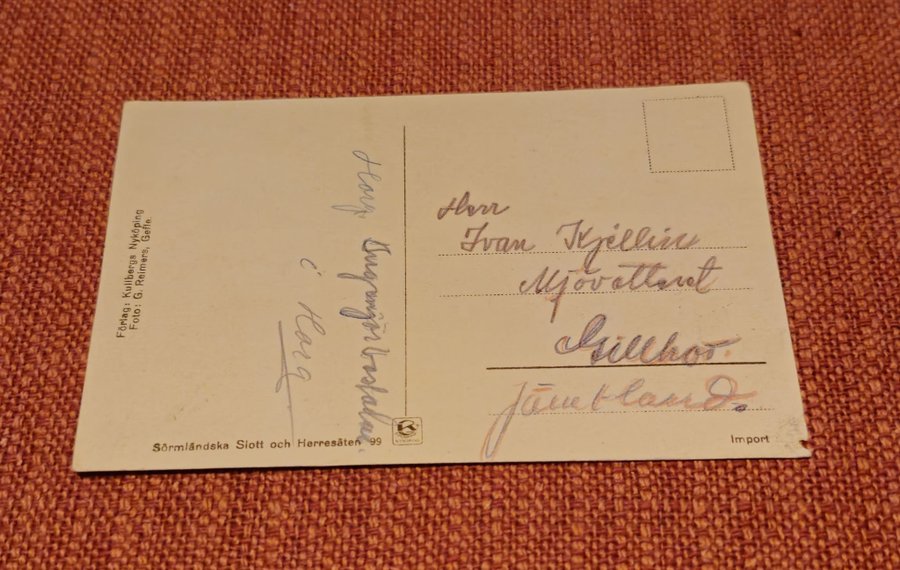 Förlag: Kullbergs Nyköping
Foto: G. Reimers, Gefle.
Harg.
i Harg
Herr
Ivan Kjellin
Mjövattnet
Gillhov.
Jämtland.
Sörmländska Slott och Herresäten 99
Import